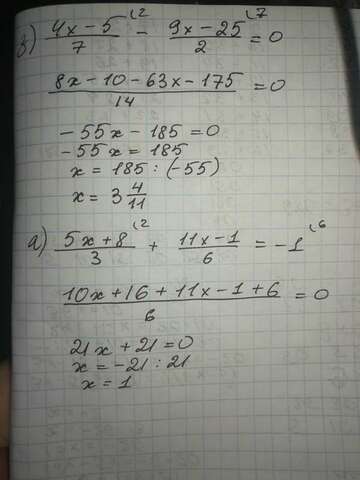 в) (4x-5)/7 ⌞2 - (9x-25)/2 ⌞7 = 0
(8x-10-63x-175)/14 = 0
-55x-185=0
-55x=185
x=185:(-55)
x=3 4/11
а) (5x+8)/3 ⌞2 + (11x-1)/6 = -1 ⌞6
(10x+16+11x-1+6)/6 = 0
21x+21=0
x=-21:21
x=1